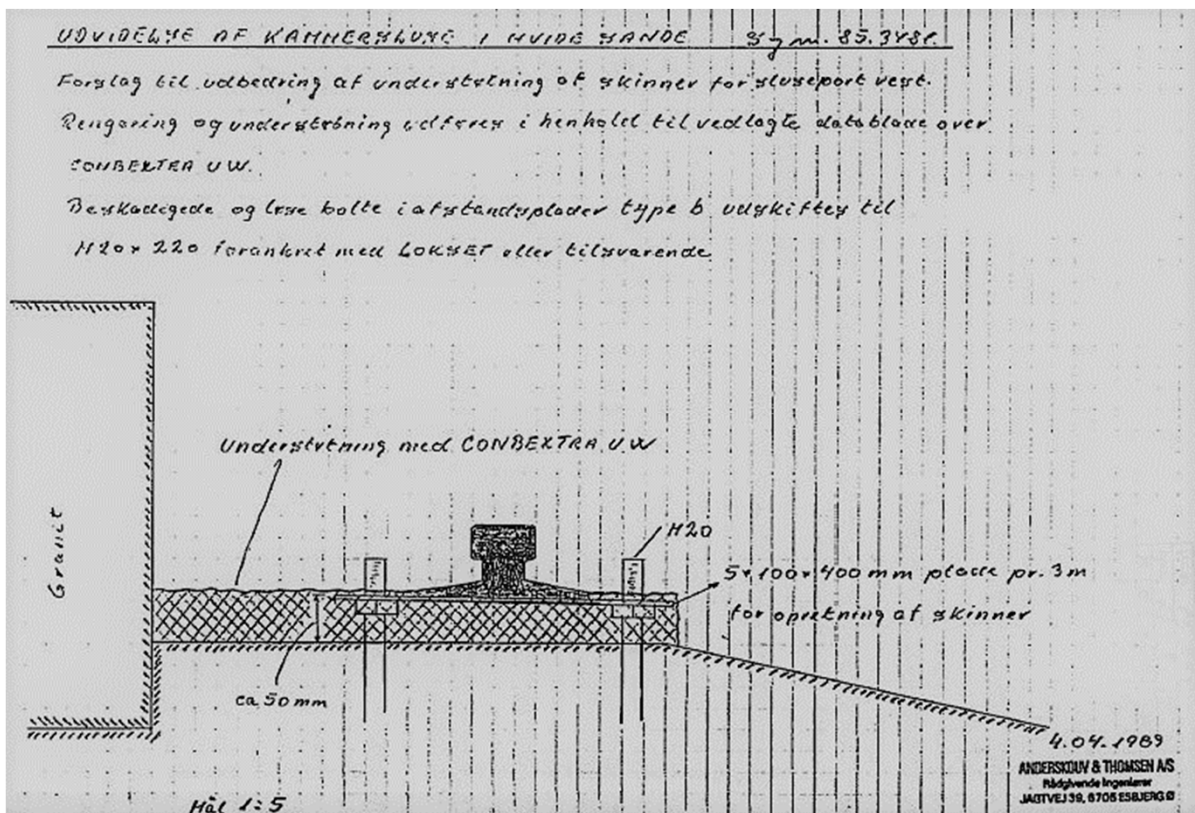 UDVIDELSE AF KAMMERSLUSE I HVIDE SANDE Sg nr. 85.3481.
Forslag til udbedring af understøtning af skinner for sluseport vest.
Rengøring og understøbning udføres i henhold til vedlagte datablade over
CONBEXTRA UW.
Beskadigede og løse bolte i afstandsplader type b udskiftes til
M20 x 220 forankret med LOKSET eller tilsvarende
Understøtning med CONBEXTRA UW
Granit
M20
5 x 100 x 400 mm plade pr. 3 m
for opretning af skinner
ca 50 mm
4.04.1989
ANDERSKOUV & THOMSEN A/S
Rådgivende Ingeniører
JAGTVEJ 39, 6705 ESBJERG Ø
Mål 1:5